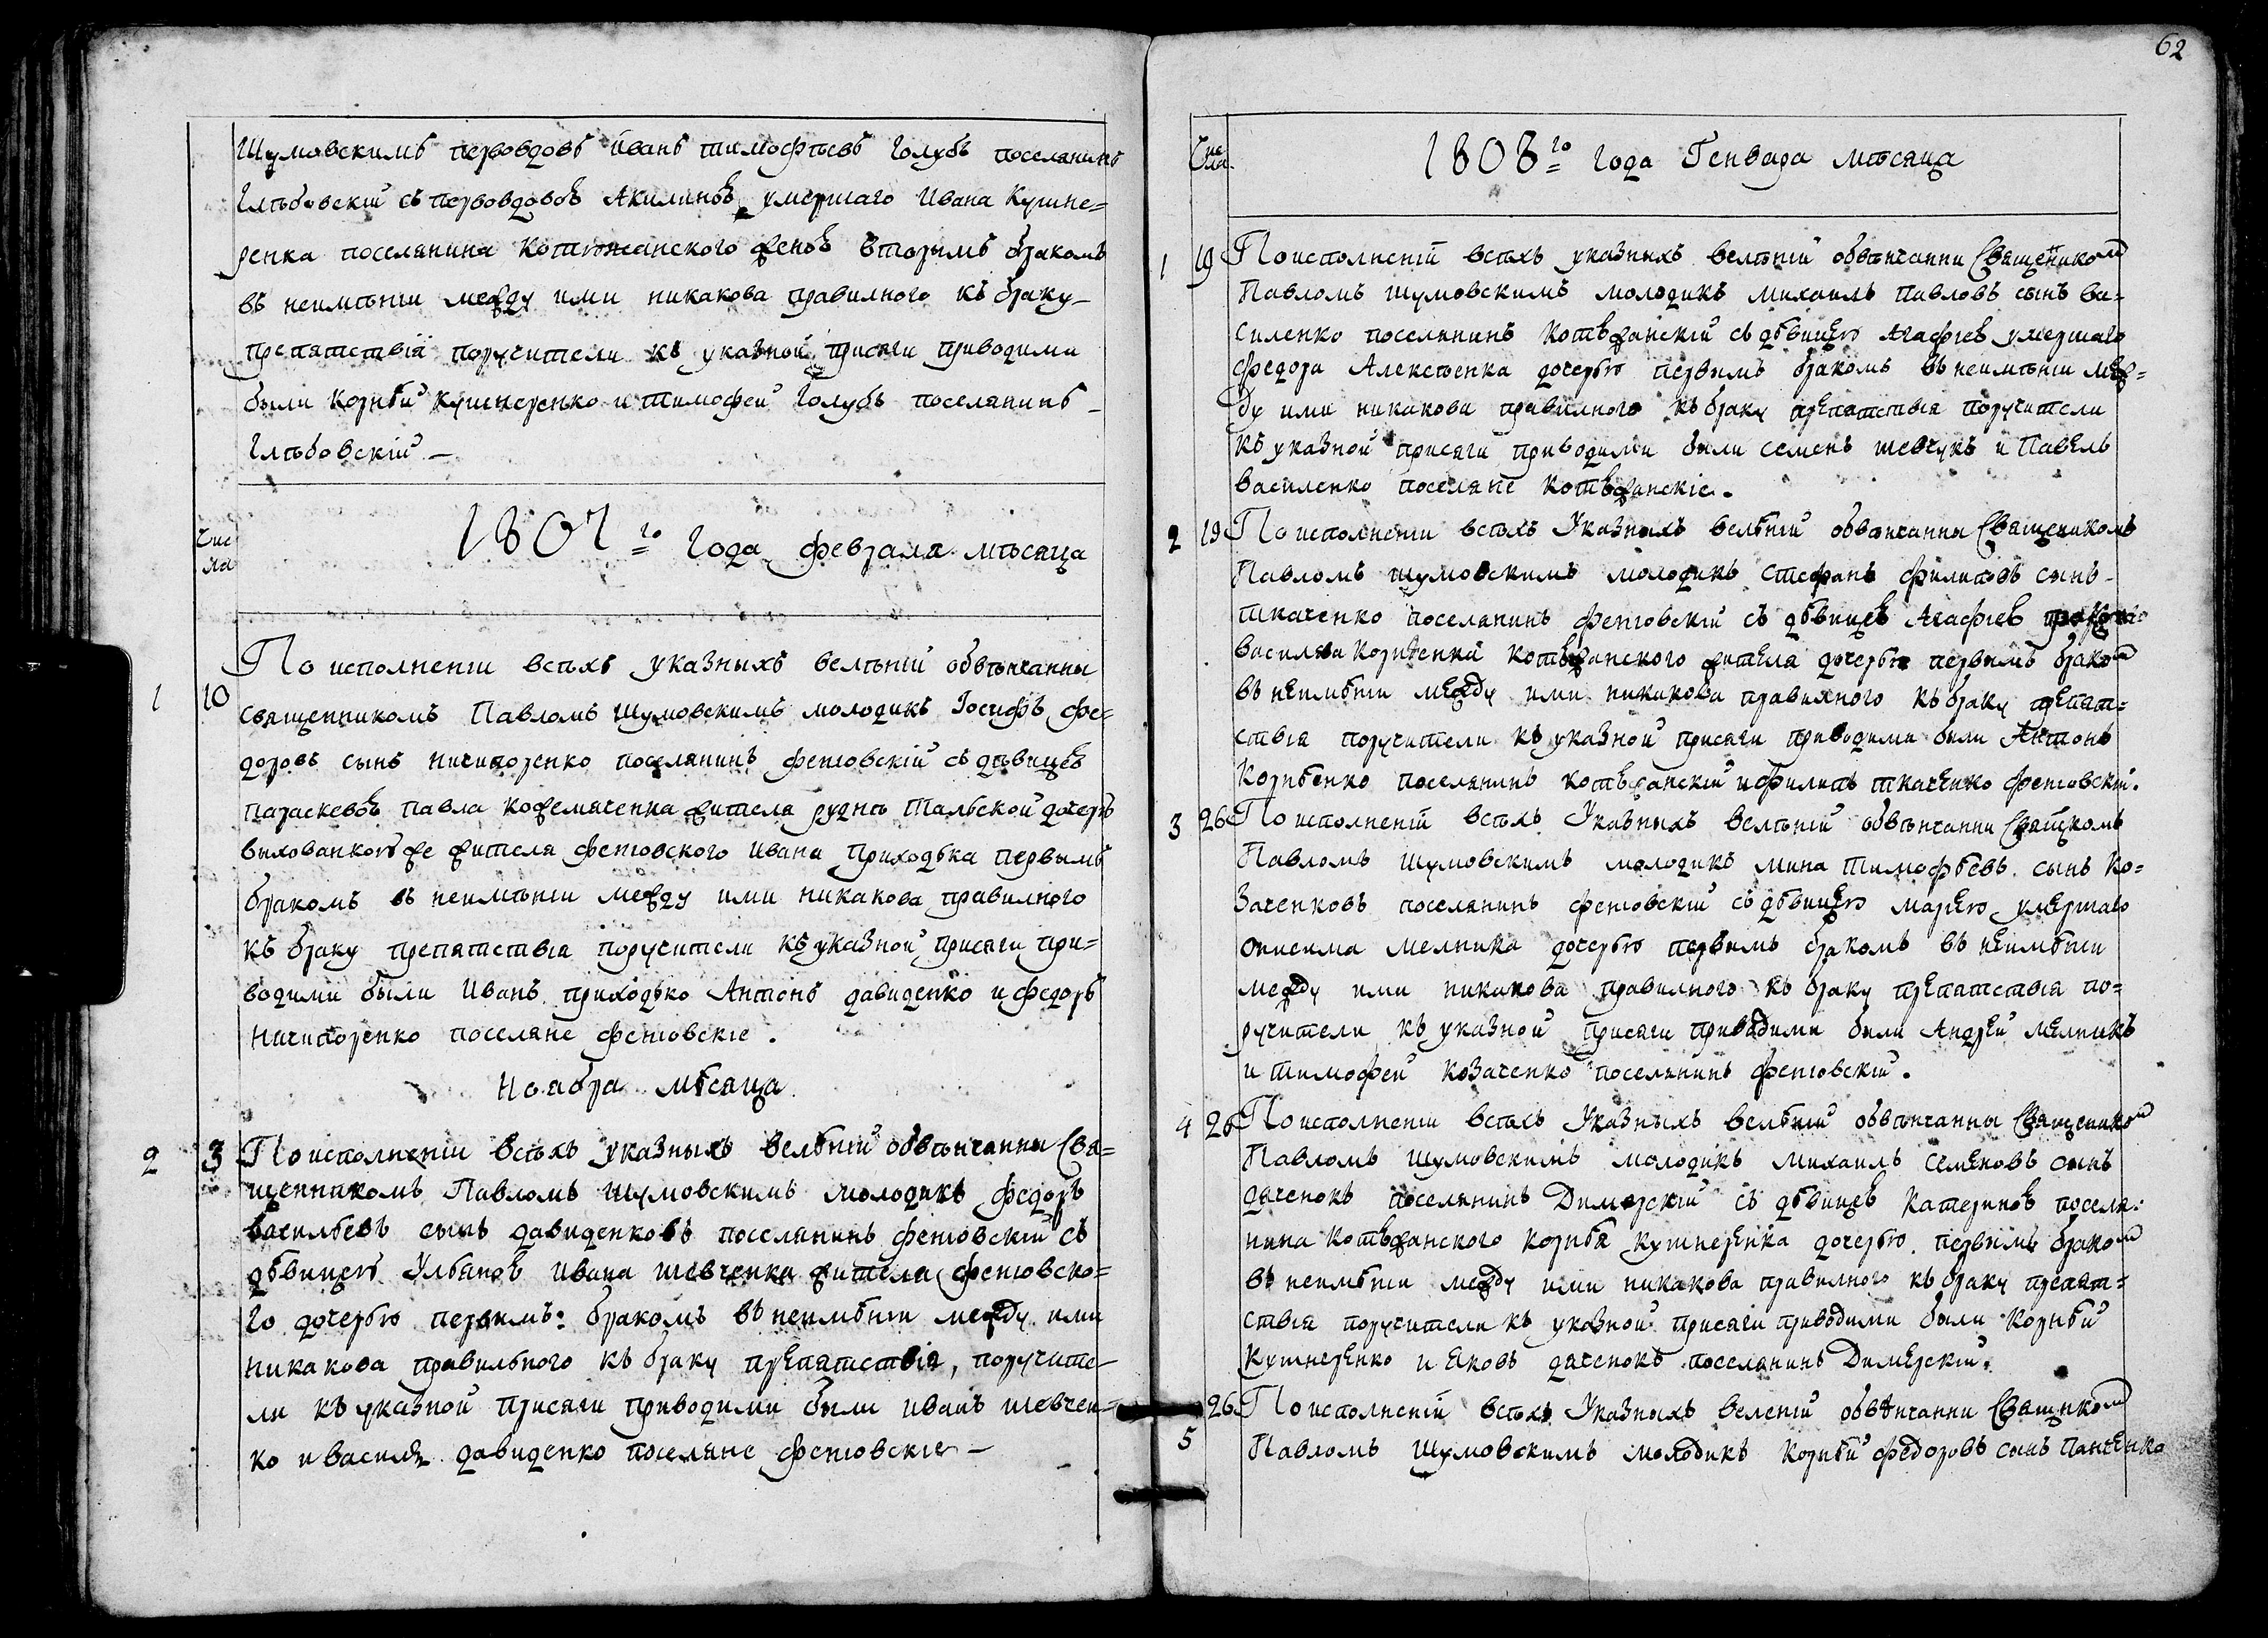 62
Шумовскимъ первовдовъ иванъ тимофѣевъ Голубъ поселянинъ
Глѣбовскій съ первовдовою Акилиною умершаго Ивана Кушне=
ренка поселянина Котюжанского женою вторымъ бракомъ
въ неимѣніи между ими никакова правилного къ браку
препятствія поручители къ указной присяги приводими
были Корнѣй Кушнеренко и тимофей Голубъ поселянинъ
Глѣбовскій
Чис
ла
1807го Года февраля мѣсяца
1 10 По исполненіи всѣхъ указныхъ велѣній обвѣнчанны
священникомъ Павломъ Шумовскимъ молодикъ Іосифъ Фе=
доровъ сынъ ничипоренко поселянинъ феневскій съ дѣвицею
параскевою павла кожемяченка жителя рудни Тальской дочерю
выхованкою же жителя феневского Ивана Приходька первымъ
бракомъ въ неимѣніи между ими никакова правилного
къ браку препятствія поручители къ указной присяги при=
водими были Иванъ приходько Антонъ давиденко и федоръ
ничипоренко поселяне феневскіе.
Ноября мѣсяца
2 3 По исполненіи всѣхъ указныхъ велѣній обвѣнчанны Свя=
щенникомъ Павломъ Шумовскимъ молодикъ федоръ
васильевъ сынъ давиденковъ поселянинъ феневскій съ
дѣвицею Ульяною ивана шевченка жителя феневско=
го дочерью первымъ: бракомъ въ неимѣніи между ими
никакова правильного къ браку препятствія, поручите
ли къ указной присяги приводими были иванъ шевчен=
ко и василя давиденко поселяне феневскіе
Числа
1808го Года Генваря мѣсяца
1 19 По исполненій всѣхъ указныхъ велѣній обвѣнчанни Священиком
Павломъ Шумовскимъ молодикъ михаилъ павловъ сынъ ва=
силенко поселянинъ котюжанскій съ дѣвицею Агафіею умершаго
федора Алексѣенка дочерью первымъ бракомъ въ неимѣніи меж=
ду ими никакови правилного къ браку препятствія поручители
къ указной присяги приводими были семенъ шевчукъ и павелъ
василенко поселяне котюжанскіе.
2 19 По исполненіи всѣхъ Указныхъ велѣній обвѣнчанны Священикомъ
Павломъ шумовскимъ молодикъ стефанъ филиповъ сынъ
ткаченко поселянинъ феневскій съ дѣвицею Агафіею
Василява Корнѣенка котюжанского жителя дочерью первымъ браком
въ неимѣніи между ими никакова правилного къ браку препят=
ствія поручители къ указной присяги приводими были Антонъ
Корнѣенко поселянинъ котюжанскій и филипъ ткаченко феневскій.
3 26 По исполненій всѣхъ Указныхъ велѣній обвѣнчанни Свящкомъ
Павломъ шумовскимъ молодикъ мина тимофѣевъ сынъ Ко=
заченковъ поселянинъ феневскій съ дѣвицею маріею умершаго
онисима мелника дочерью первымъ бракомъ въ неимѣніи
между ими никакова правилного къ браку препятствія по=
ручители къ указной присяги приводими были Андрей мелникъ
и тимофей козаченко поселянинъ феневскій.
4 26 По исполненіи всѣхъ Указныхъ велѣній обвѣнчанны Священиком
Павломъ шумовскимъ молодикъ михаилъ семеновъ сынъ
даченокъ поселянинъ Димерскій съ дѣвицею катериною поселя:
нина котюжанского корнѣя кушнеренка дочерью первимъ браком
въ неимѣніи между ими никакова правилного къ браку препят=
ствія поручители къ указной присяги приводими были корнѣй
кушнеренко и яковъ даченокъ поселянинъ Димерскій.
5 26 По исполненій всѣхъ Указныхъ веленій обвѣнчанни Священиком
Павломъ Шумовскимъ молодикъ корнѣй федоровъ сынъ панченко